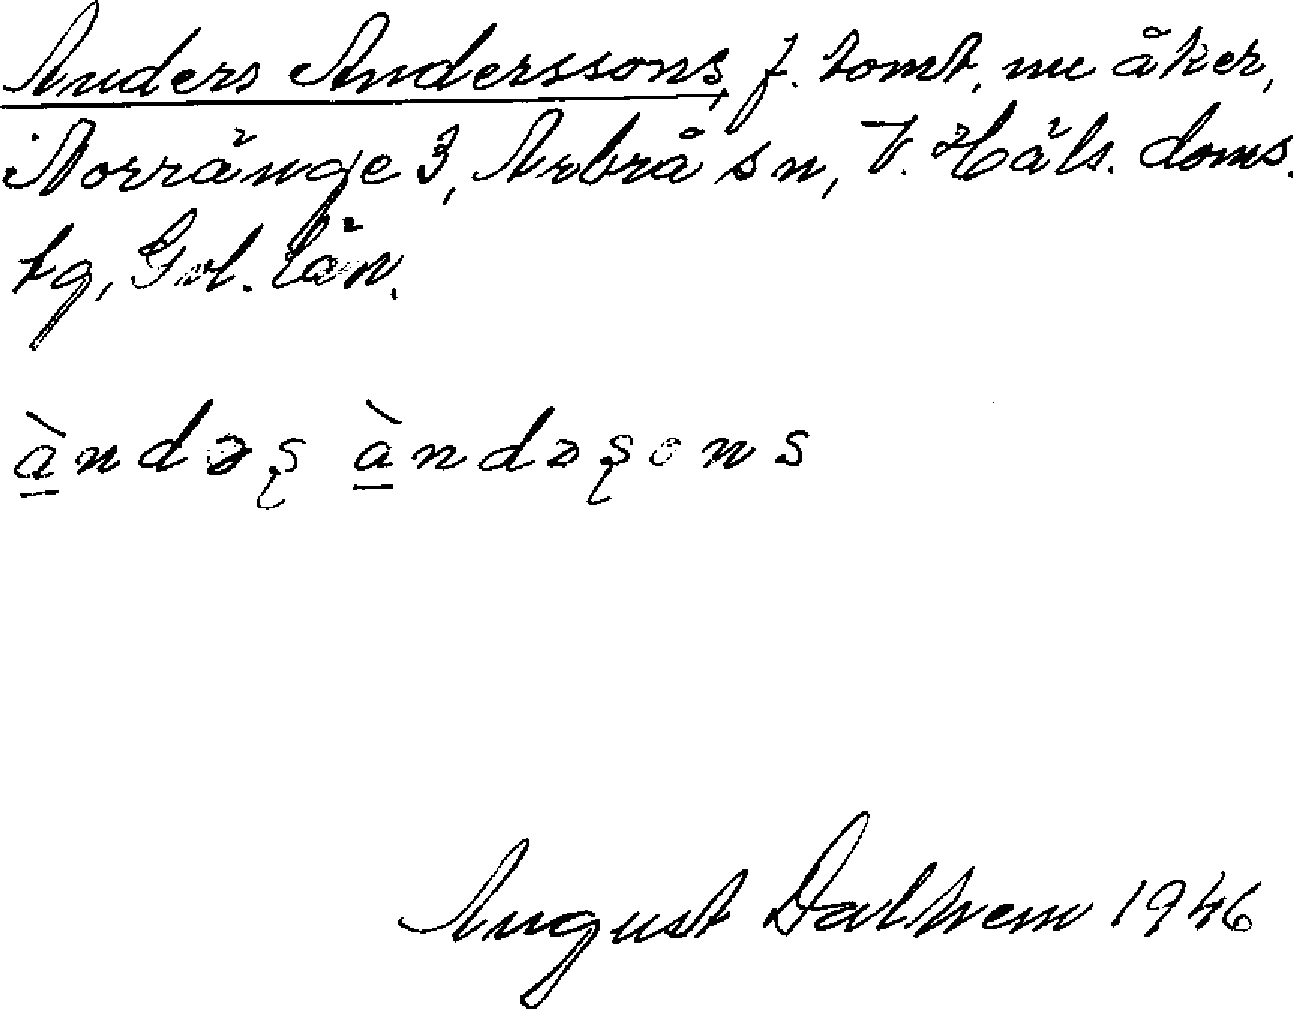 Anders Anderssons, f. tomt, nu åker,
Norränge 3, Arbrå sn, V. Häls. doms.
tg, Gvl. län.
àndəş àndəşons
August Dalhem 1946